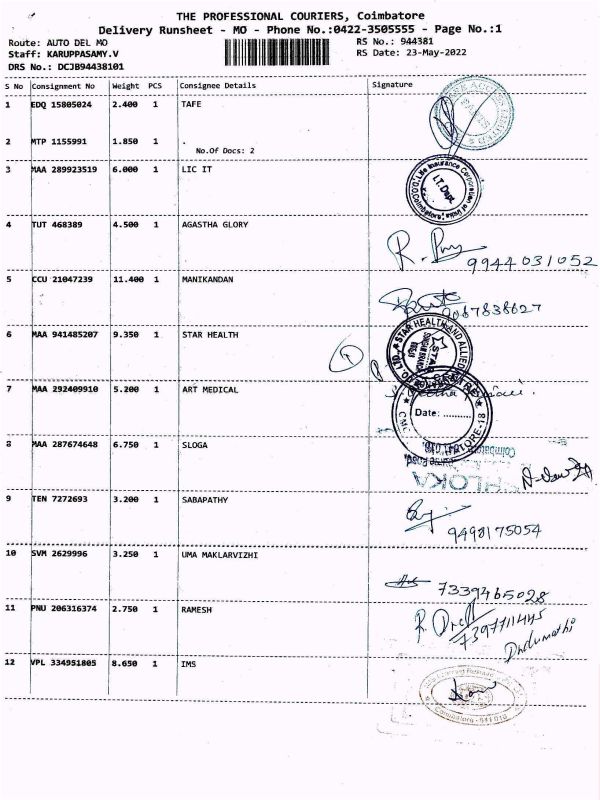 THE PROFESSIONAL COURIERS, Coimbatore
Delivery Runsheet - MO - Phone No.:0422-3505555 - Page No.:1
Route: AUTO DEL MO
RS No.: 944381
Staff: KARUPPASAMY.V
RS Date: 23-May-2022
DRS No.: DCJB94438101
S No Consignment No Weight PCS Consignee Details Signature
1 EDQ 15805024 2.400 1 TAFE
2 MTP 1155991 1.850 1 .
No.Of Docs: 2
3 MAA 289923519 6.000 1 LIC IT
Life Insurance Corporation of India
I.T. Dept.
Coimbatore
4 TUT 468389 4.500 1 AGASTHA GLORY
9944031052
5 CCU 21047239 11.400 1 MANIKANDAN
9087838627
6 MAA 941485207 9.350 1 STAR HEALTH
STAR HEALTH AND ALLIED
7 MAA 292409910 5.200 1 ART MEDICAL
Date: ..........
8 MAA 287674648 6.750 1 SLOGA
Coimbatore
9 TEN 7272693 3.200 1 SABAPATHY
9498175054
10 SVM 2629996 3.250 1 UMA MAKLARVIZHI
7339465028
11 PNU 206316374 2.750 1 RAMESH
7397711445
Indumathi
12 VPL 334951805 8.650 1 IMS